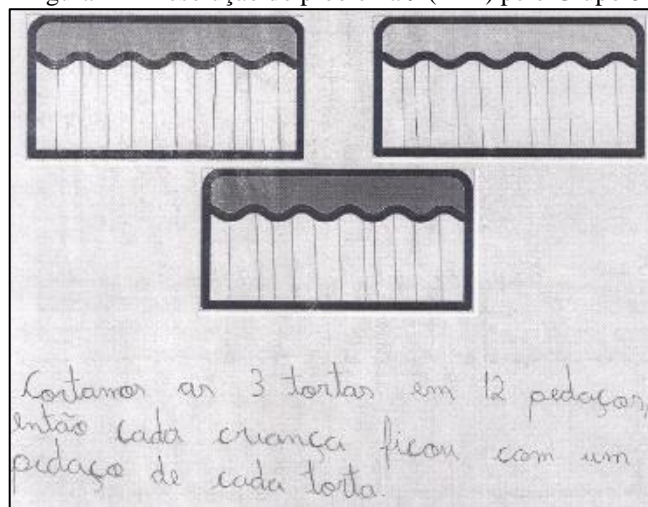 Cortamos as 3 tortas em 12 pedaços,
então cada criança ficou com um
pedaço de cada torta.